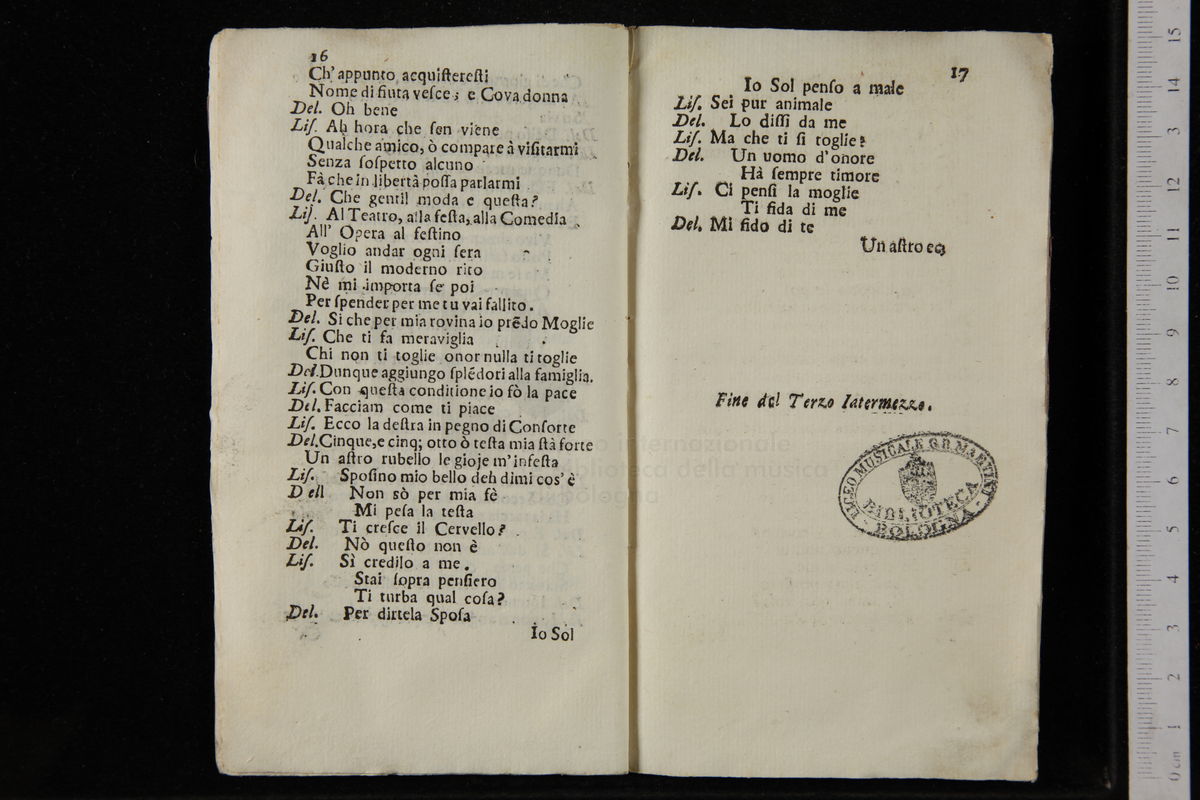 16
Ch' appunto acquiſtereſti
Nome di fiuta veſce; e Cova donna
Del. Oh bene
Liſ. Ah hora che ſen viene
Qualche amico, ò compare à viſitarmi
Senza ſoſpetto alcuno
Fà che in libertà poſſa parlarmi
Del. Che gentil moda e queſta?
Liſ. Al Teatro, alla feſta, alla Comedia
All' Opera al feſtino
Voglio andar ogni ſera
Giuſto il moderno rito
Nè mi importa ſe poi
Per ſpender per me tu vai fallito.
Del. Si che per mia rovina io prẽdo Moglie
Liſ. Che ti fa meraviglia
Chi non ti toglie onor nulla ti toglie
Del. Dunque aggiungo ſplẽdori alla famiglia.
Liſ. Con queſta conditione io fò la pace
Del. Facciam come ti piace
Liſ. Ecco la deſtra in pegno di Conſorte
Del. Cinque, e cinq; otto ò teſta mia ſtà forte
Un aſtro rubello le gioje m' infeſta
Liſ. Spoſino mio bello deh dimi cos' è
Dell Non sò per mia fè
Mi peſa la teſta
Liſ. Ti creſce il Cervello?
Del. Nò queſto non è
Liſ. Sì credilo a me.
Stai ſopra penſiero
Ti turba qual coſa?
Del. Per dirtela Spoſa
Io Sol
17
Io Sol penſo a male
Liſ. Sei pur animale
Del. Lo diſſi da me
Liſ. Ma che ti ſi toglie?
Del. Un uomo d'onore
Hà ſempre timore
Liſ. Ci penſi la moglie
Ti fida di me
Del. Mi fido di te
Un aſtro ec
Fine del Terzo Intermezzo.
LICEO MUSICALE G.B. MARTINI
BIBLIOTECA
BOLOGNA
internazionale
biblioteca della musica
bologna
0 cm 1 2 3 4 5 6 7 8 9 10 11 12 13 14 15